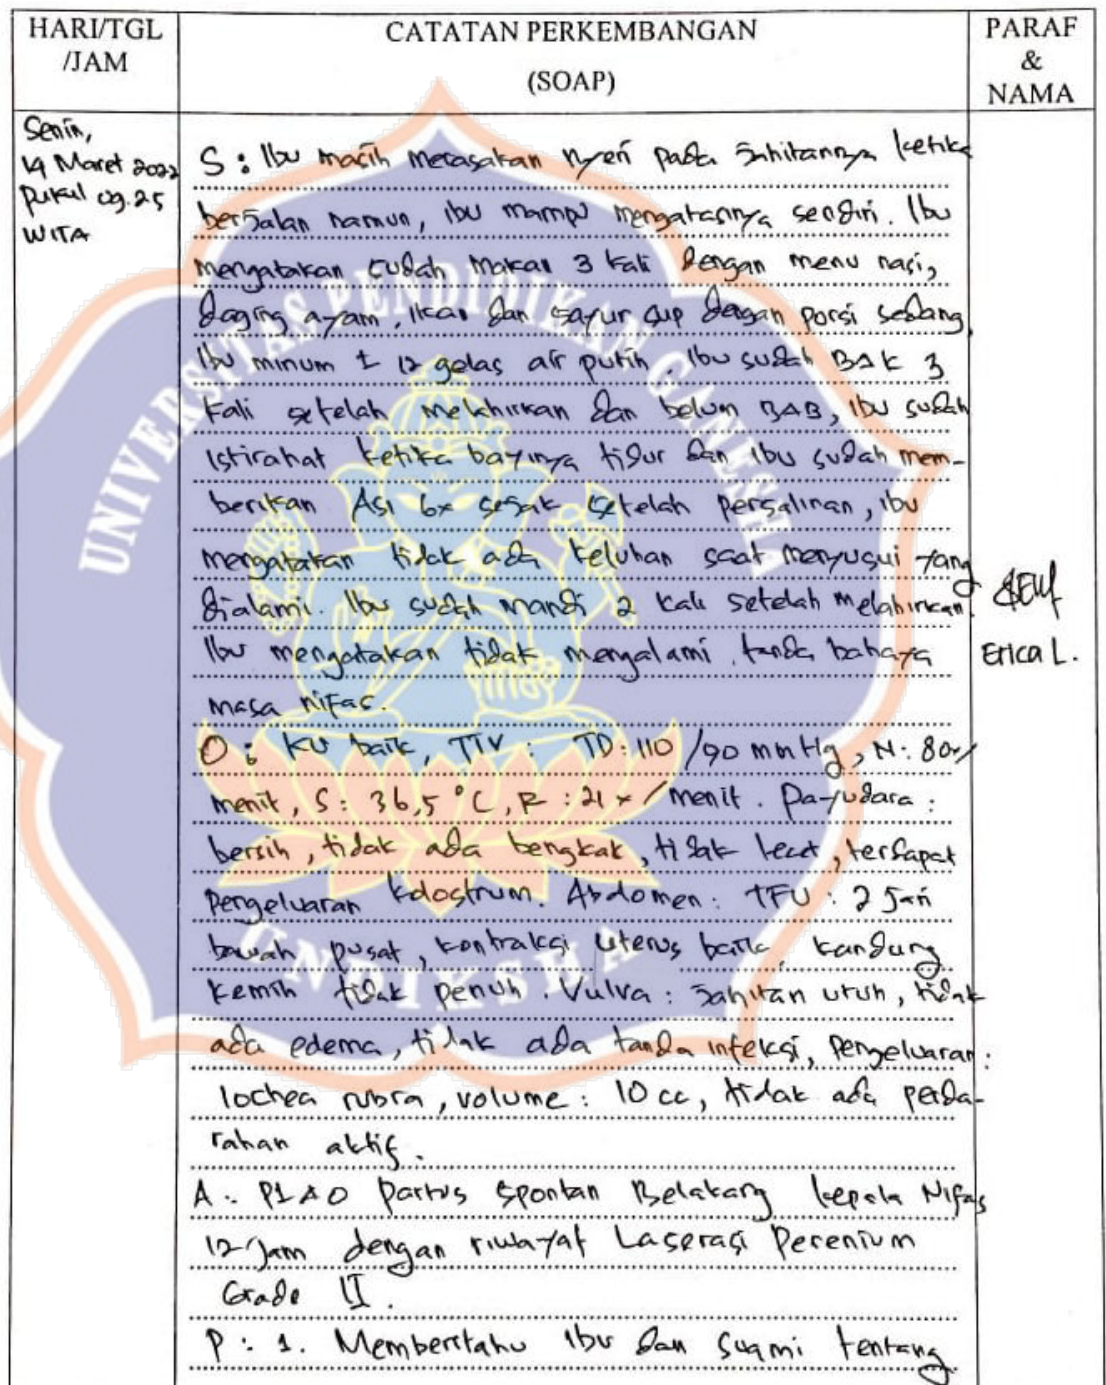 HARI/TGL
/JAM
CATATAN PERKEMBANGAN
(SOAP)
PARAF
&
NAMA
Senin,
14 Maret 2022
pukul 09.25
WITA
S : Ibu masih merasakan nyeri pada Jahitannya ketika
berjalan namun, ibu mampu mengatasinya sendiri. Ibu
mengatakan sudah makan 3 kali dengan menu nasi,
daging ayam, ikan dan sayur sup dengan porsi sedang,
Ibu minum ± 12 gelas air putih. Ibu sudah BAK 3
kali setelah melahirkan dan belum BAB, ibu sudah
Istirahat ketika bayinya tidur dan Ibu sudah mem-
berikan Asi 6x sejak setelah persalinan, ibu
mengatakan tidak ada keluhan saat menyusui yang
dialami. Ibu sudah mandi 2 kali setelah melahirkan.
Ibu mengatakan tidak mengalami tanda bahaya
masa nifas.
Erica L.
O : KU baik, TTV : TD : 110/90 mmHg, N : 80x/
menit, S : 36,5 °C, R : 21 x/menit. Payudara :
bersih, tidak ada bengkak, tidak lecet, terdapat
Pengeluaran kolostrum. Abdomen : TFU : 2 Jari
bawah pusat, kontraksi uterus baik, kandung
kemih tidak penuh. Vulva : Jahitan utuh, tidak
ada edema, tidak ada tanda infeksi, Pengeluaran :
lochea rubra, volume : 10 cc, tidak ada perda-
rahan aktif.
A : P1A0 Partus Spontan Belakang kepala Nifas
12 Jam dengan riwayat Laserasi Perenium
Grade II.
P : 1. Memberitahu Ibu dan suami tentang
UNIVERSITAS PENDIDIKAN GANESHA
UNDIKSHA